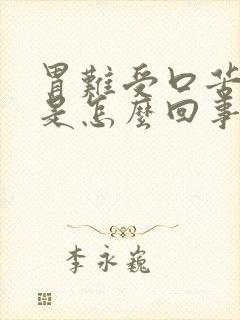 胃難受口苦
是怎麼回事
李永巍